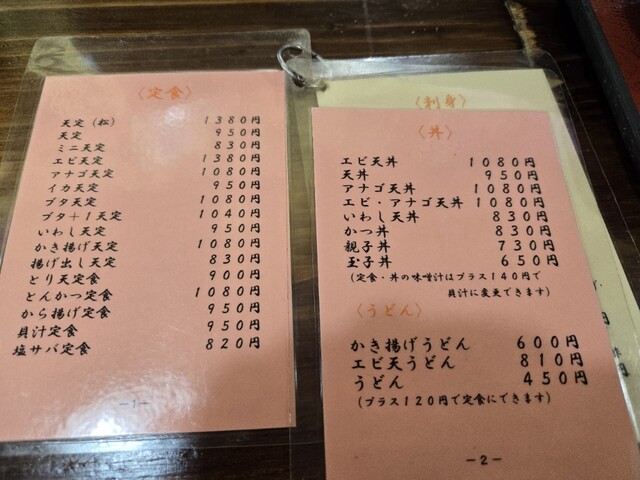 〈定食〉
天定（松） 1380円
天定 950円
ミニ天定 830円
エビ天定 1380円
アナゴ天定 1080円
イカ天定 950円
ブタ天定 1080円
ブタ＋1天定 1040円
いわし天定 950円
かき揚げ天定 1080円
揚げ出し天定 830円
とり天定食 900円
とんかつ定食 1080円
から揚げ定食 950円
貝汁定食 950円
塩サバ定食 820円
－1－
〈刺身〉
〈丼〉
エビ天丼 1080円
天丼 950円
アナゴ天丼 1080円
エビ・アナゴ天丼 1080円
いわし天丼 830円
かつ丼 830円
親子丼 730円
玉子丼 650円
（定食・丼の味噌汁はプラス140円で
貝汁に変更できます）
〈うどん〉
かき揚げうどん 600円
エビ天うどん 810円
うどん 450円
（プラス120円で定食にできます）
－2－